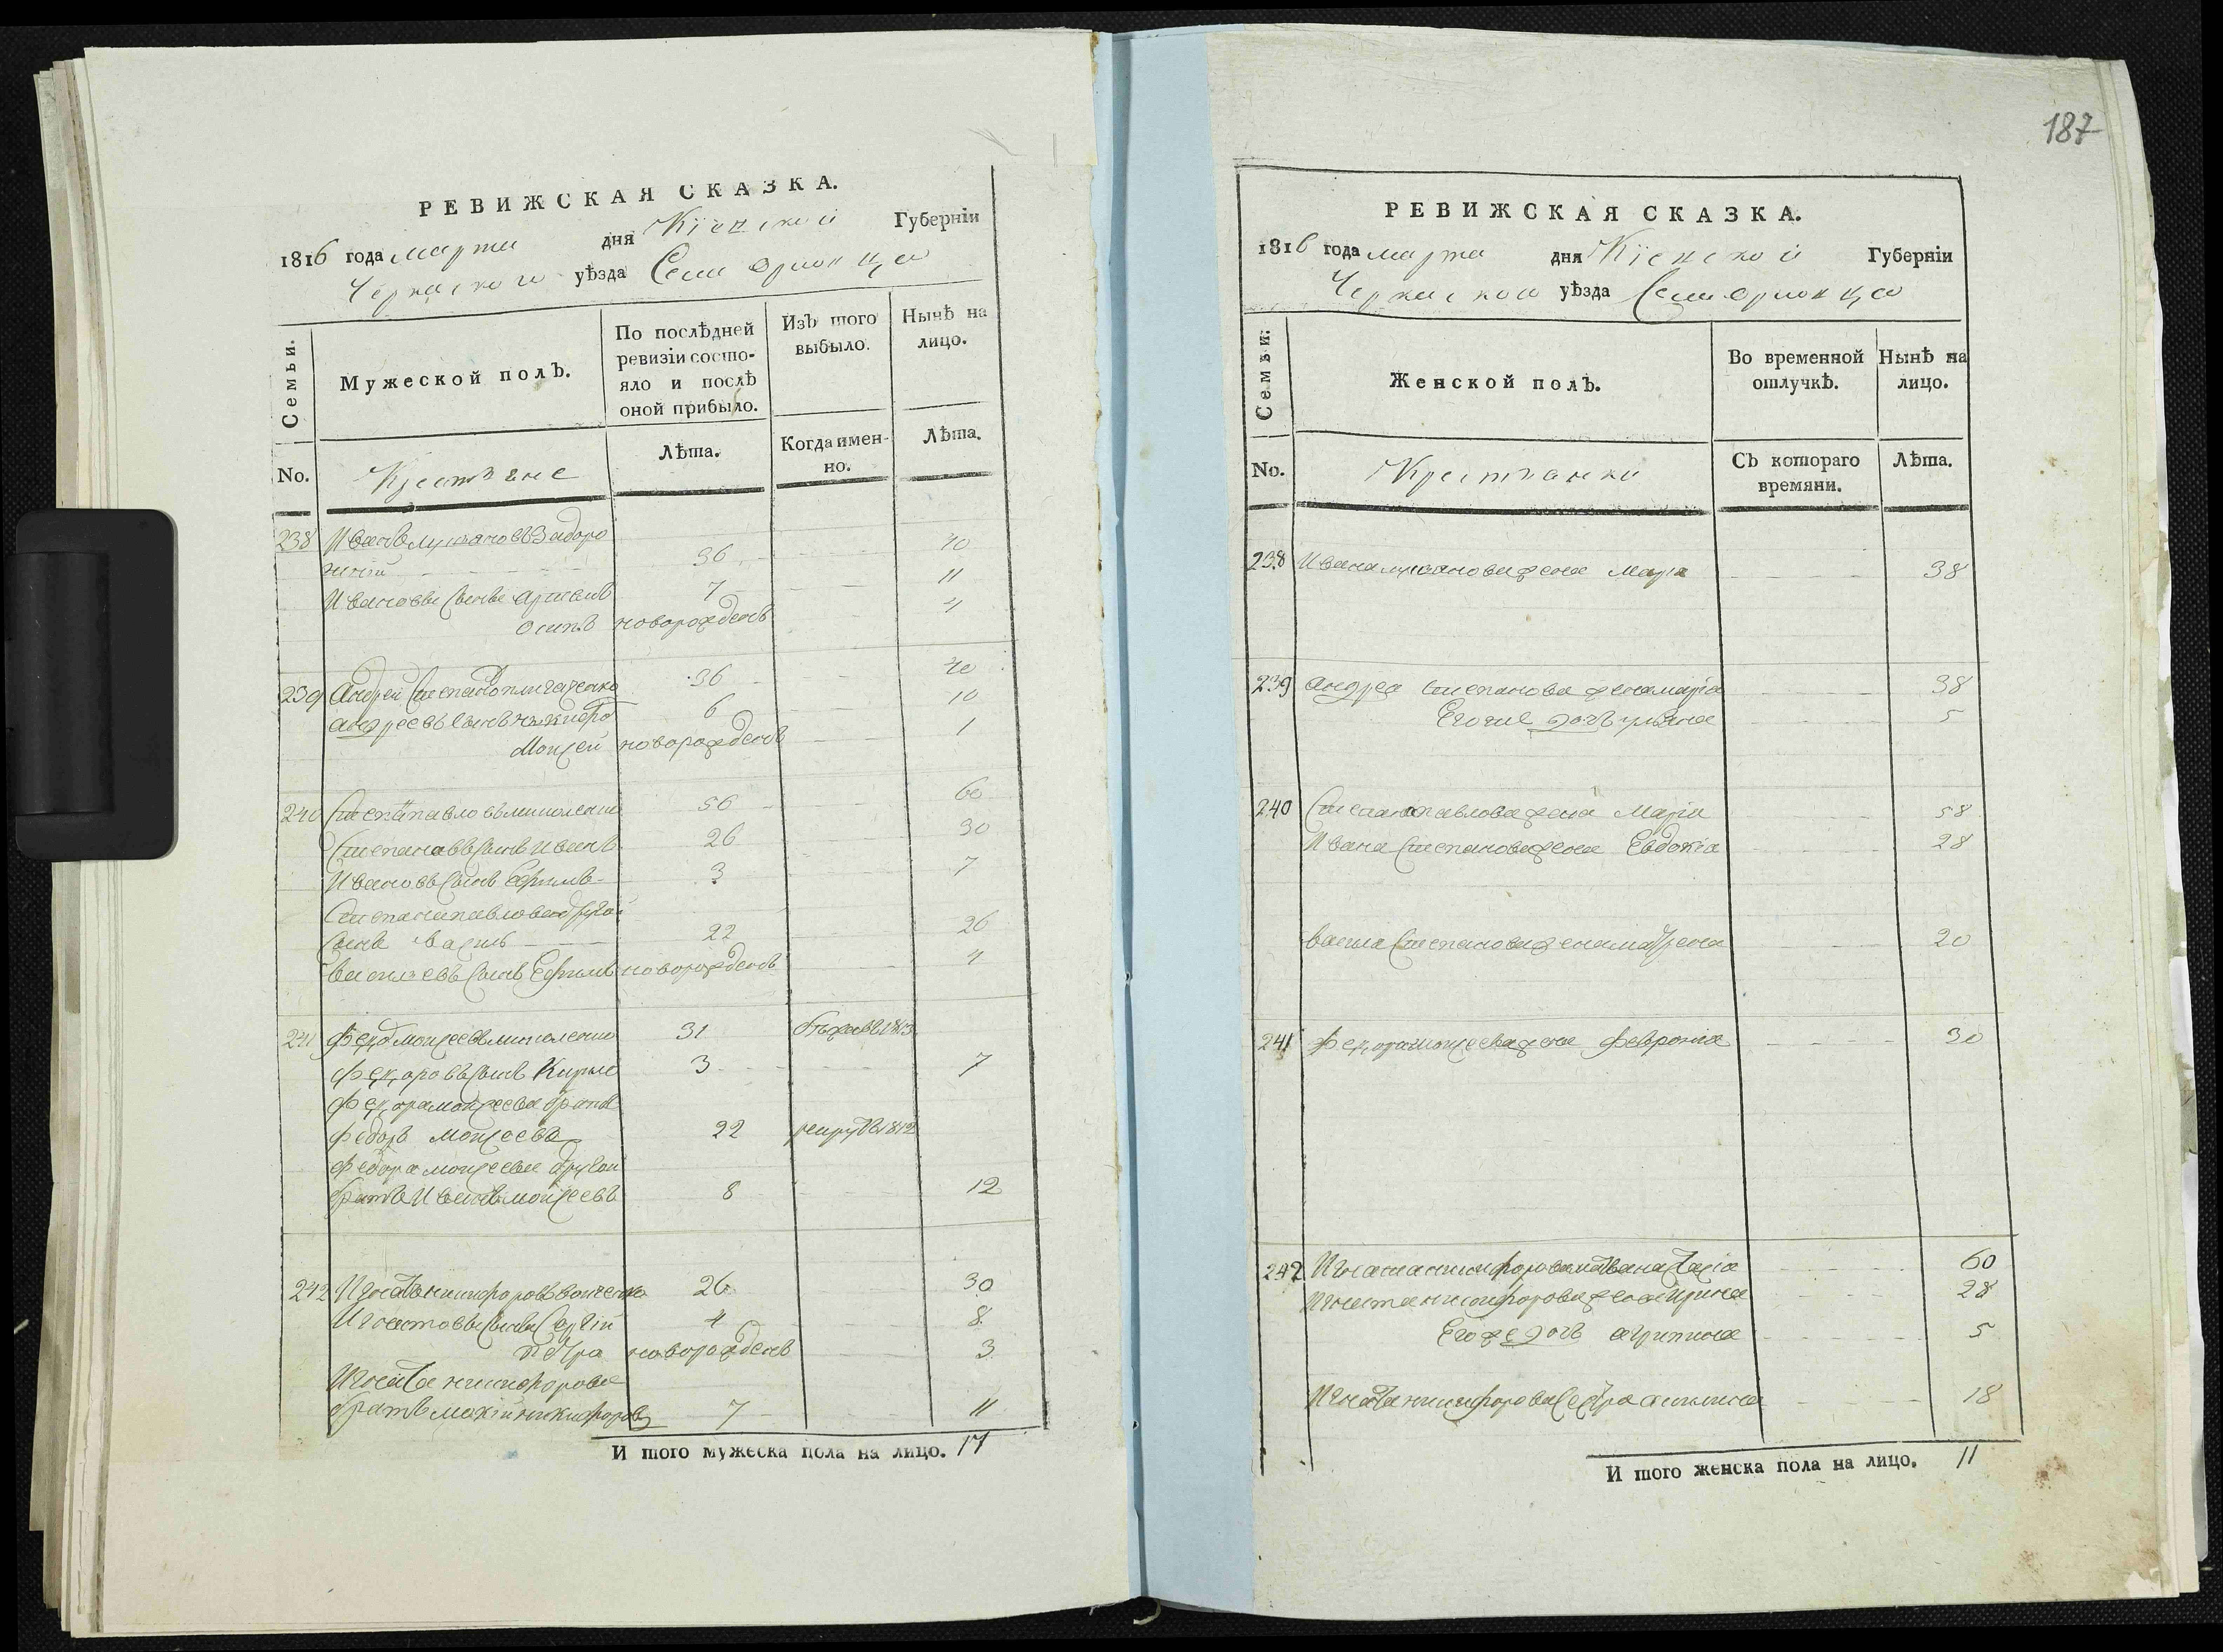 РЕВИЖСКАЯ СКАЗКА.
1816 года марта дня Кіевской Губерніи
Черкаского уѣзда Села
Семьи.
Мужеской полъ.
По послѣдней ревизіи состояло и послѣ оной прибыло.
Изъ того выбыло.
Нынѣ на лицо.
No.
Крестьяне
Лѣта.
Когда именно.
Лѣта.
238 Иванъ Лукяновъ Задоро
жній 36 40
Ивановы сынъве 7 11
Осипъ новорожденъ 4
239 Андрей Степановъ 36 40
Андреевъ сынъ Никифоръ 6 10
Моисей новорожденъ 1
240 Степанъ Павловъ 56 60
Степановъ сынъ Иванъ 26 30
Ивановъ сынъ Ефимъ 3 7
Степана Павлова другой
сынъ Василь 22 26
Васильевъ сынъ Ефимъ новорожденъ 4
241 Моисеевъ 31 бѣжавъ 1813
сынъ Кирило 3 7
Моисеева братъ
Федоръ Моисеевъ 22 рекрутъ 1812
Федора Моисеева другой
братъ Иванъ Моисеевъ 8 12
242 Игнатъ Никифоровъ 26 30
Игнатовы сынъве Сергій 4 8
Петро новорожденъ 3
Игната Никифорова
братъ Мокій Никифоровъ 7 11
И того мужеска пола на лицо. 17
187
РЕВИЖСКАЯ СКАЗКА.
1816 года марта дня Кіевской Губерніи
Черкаского уѣзда Села
Семьи.
Женской полъ.
Во временной отлучкѣ.
Нынѣ на лицо.
No.
Крестьянки
Съ котораго времяни.
Лѣта.
238 Ивана Лукянова жена Марія 38
239 Андрея Степанова жена Марія 38
Его же дочь Уляна 5
240 Степана Павлова жена Марія 58
Ивана Степанова жена Евдокія 28
Василя Степанова жена Матрона 20
241 Моисеева жена Февронія 30
242 Игната Никифорова мать 60
Игната Никифорова жена Ирина 28
Его же дочь Агрипина 5
Игната Никифорова сестра 18
И того женска пола на лицо. 11